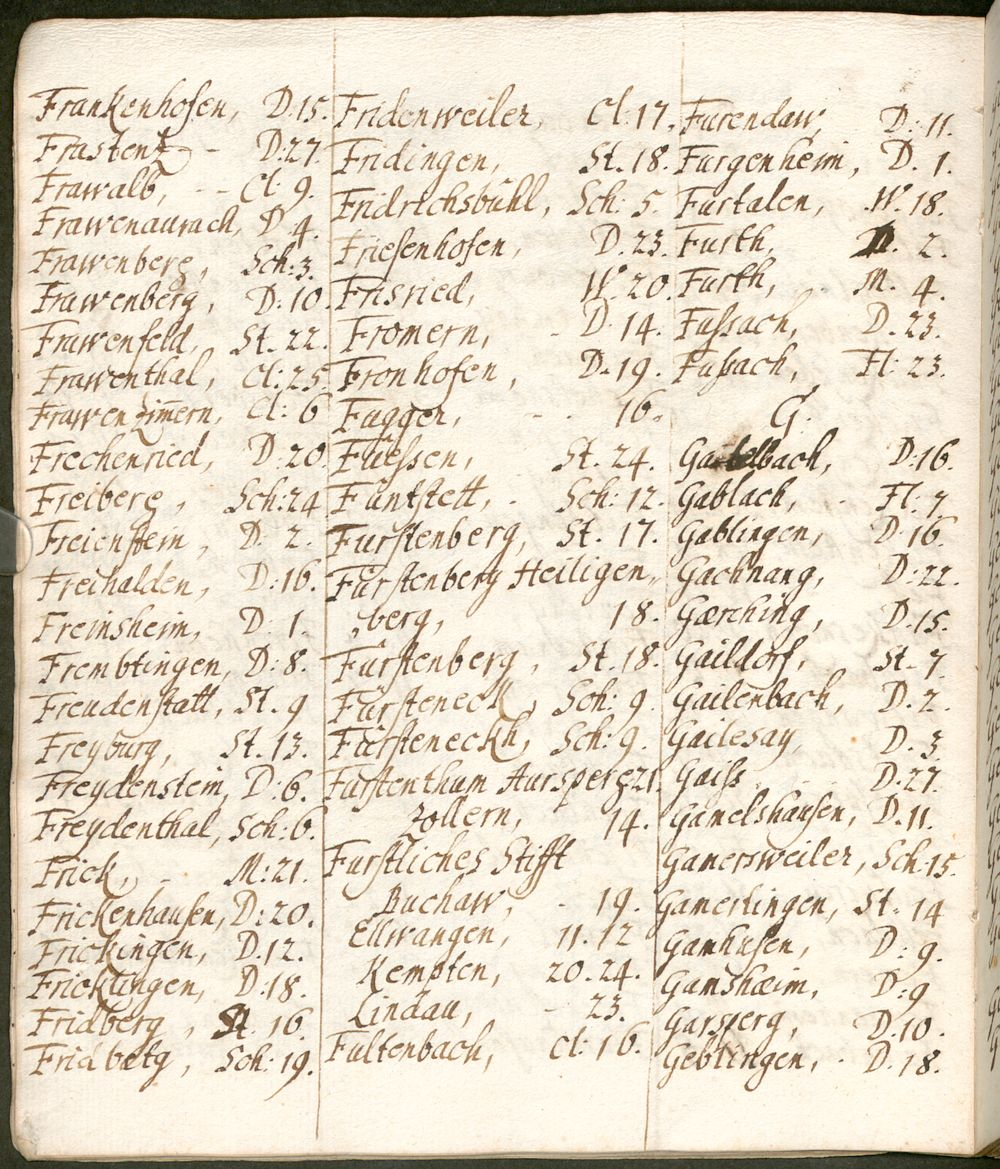 Frankenhofen, D. 15.
Frastentz - - D. 27.
Frawalb, - - Cl: 9.
Frawenaurach, D. 4.
Frawenberg, Sch: 3.
Frawenberg, D. 10.
Frawenfeld, St. 22.
Frawenthal, Cl: 25.
Frawenzim̄ern, Cl: 6
Frechenried, D. 20.
Freiberg, Sch: 24
Freienstein, D. 2.
Freihalden, D: 16.
Freinsheim, D. 1.
Frembtingen, D: 8.
Freudenstatt, St. 9
Freyburg, St. 13.
Freydenstein, D: 6.
Freydenthal, Sch: 6.
Frick, - M: 21.
Frickenhausen, D: 20.
Frickingen, D. 12.
Fricklingen, D. 18.
Fridberg, St. 16.
Fridberg, Sch: 19.
Fridenweiler, Cl: 17.
Fridingen, St. 18.
Fridrichsbühl, Sch: 5.
Friesenhofen, D. 23.
Frisried, W. 20.
Fromern, - D. 14.
Fronhofen, D. 19.
Fugger, - - 16.
Fuessen, St. 24.
Funtstett, - Sch: 12.
Furstenberg, St. 17.
Fürstenberg Heiligen„
„berg, 18.
Fürstenberg, St. 18.
Fürsteneck, Sch: 9.
Fürsteneckh, Sch: 9.
Furstenthum Aursperg 21.
Zollern, 14.
Furstliches Stifft
Buchaw, - 19.
Ellwangen, 11. 12
Kempten, 20. 24.
Lindau, - 23.
Fultenbach, Cl: 16.
Furendaw, D: 11.
Furgenheim, D. 1.
Furtalen, W. 18.
Furth, 2.
Furth, M. 4.
Fussach, D. 23.
Fussach, Fl: 23.
G.
Gabelbach, D. 16.
Gablach, - Fl: 7.
Gablingen, D. 16.
Gachnang, D: 22.
Gærching, D. 15.
Gaildorf, St. 7
Gailenbach, D. 2.
Gailesay, D. 3.
Gaiss, D. 27.
Gamelshausen, D. 11.
Gamersweiler, Sch. 15.
Gamertingen, St. 14
Gamhusen, D: 9.
Gamshæim, D: 9
Garsperg, D. 10.
Geblingen, - D. 18.